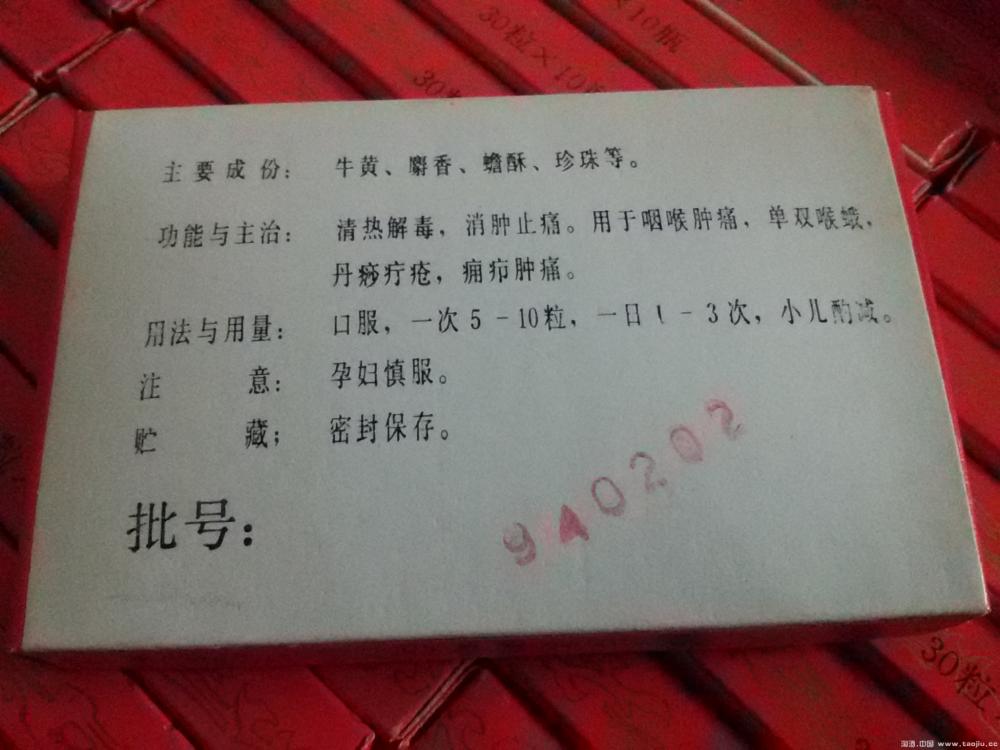 30粒×10瓶
×10瓶
30
主要成份：牛黄、麝香、蟾酥、珍珠等。
功能与主治：清热解毒，消肿止痛。用于咽喉肿痛，单双喉蛾，
丹痧疔疮，痈疖肿痛。
用法与用量：口服，一次5-10粒，一日1-3次，小儿酌减。
注意：孕妇慎服。
贮藏；密封保存。
批号：
940202
30粒
淘酒.中国 www.taojiu.cc